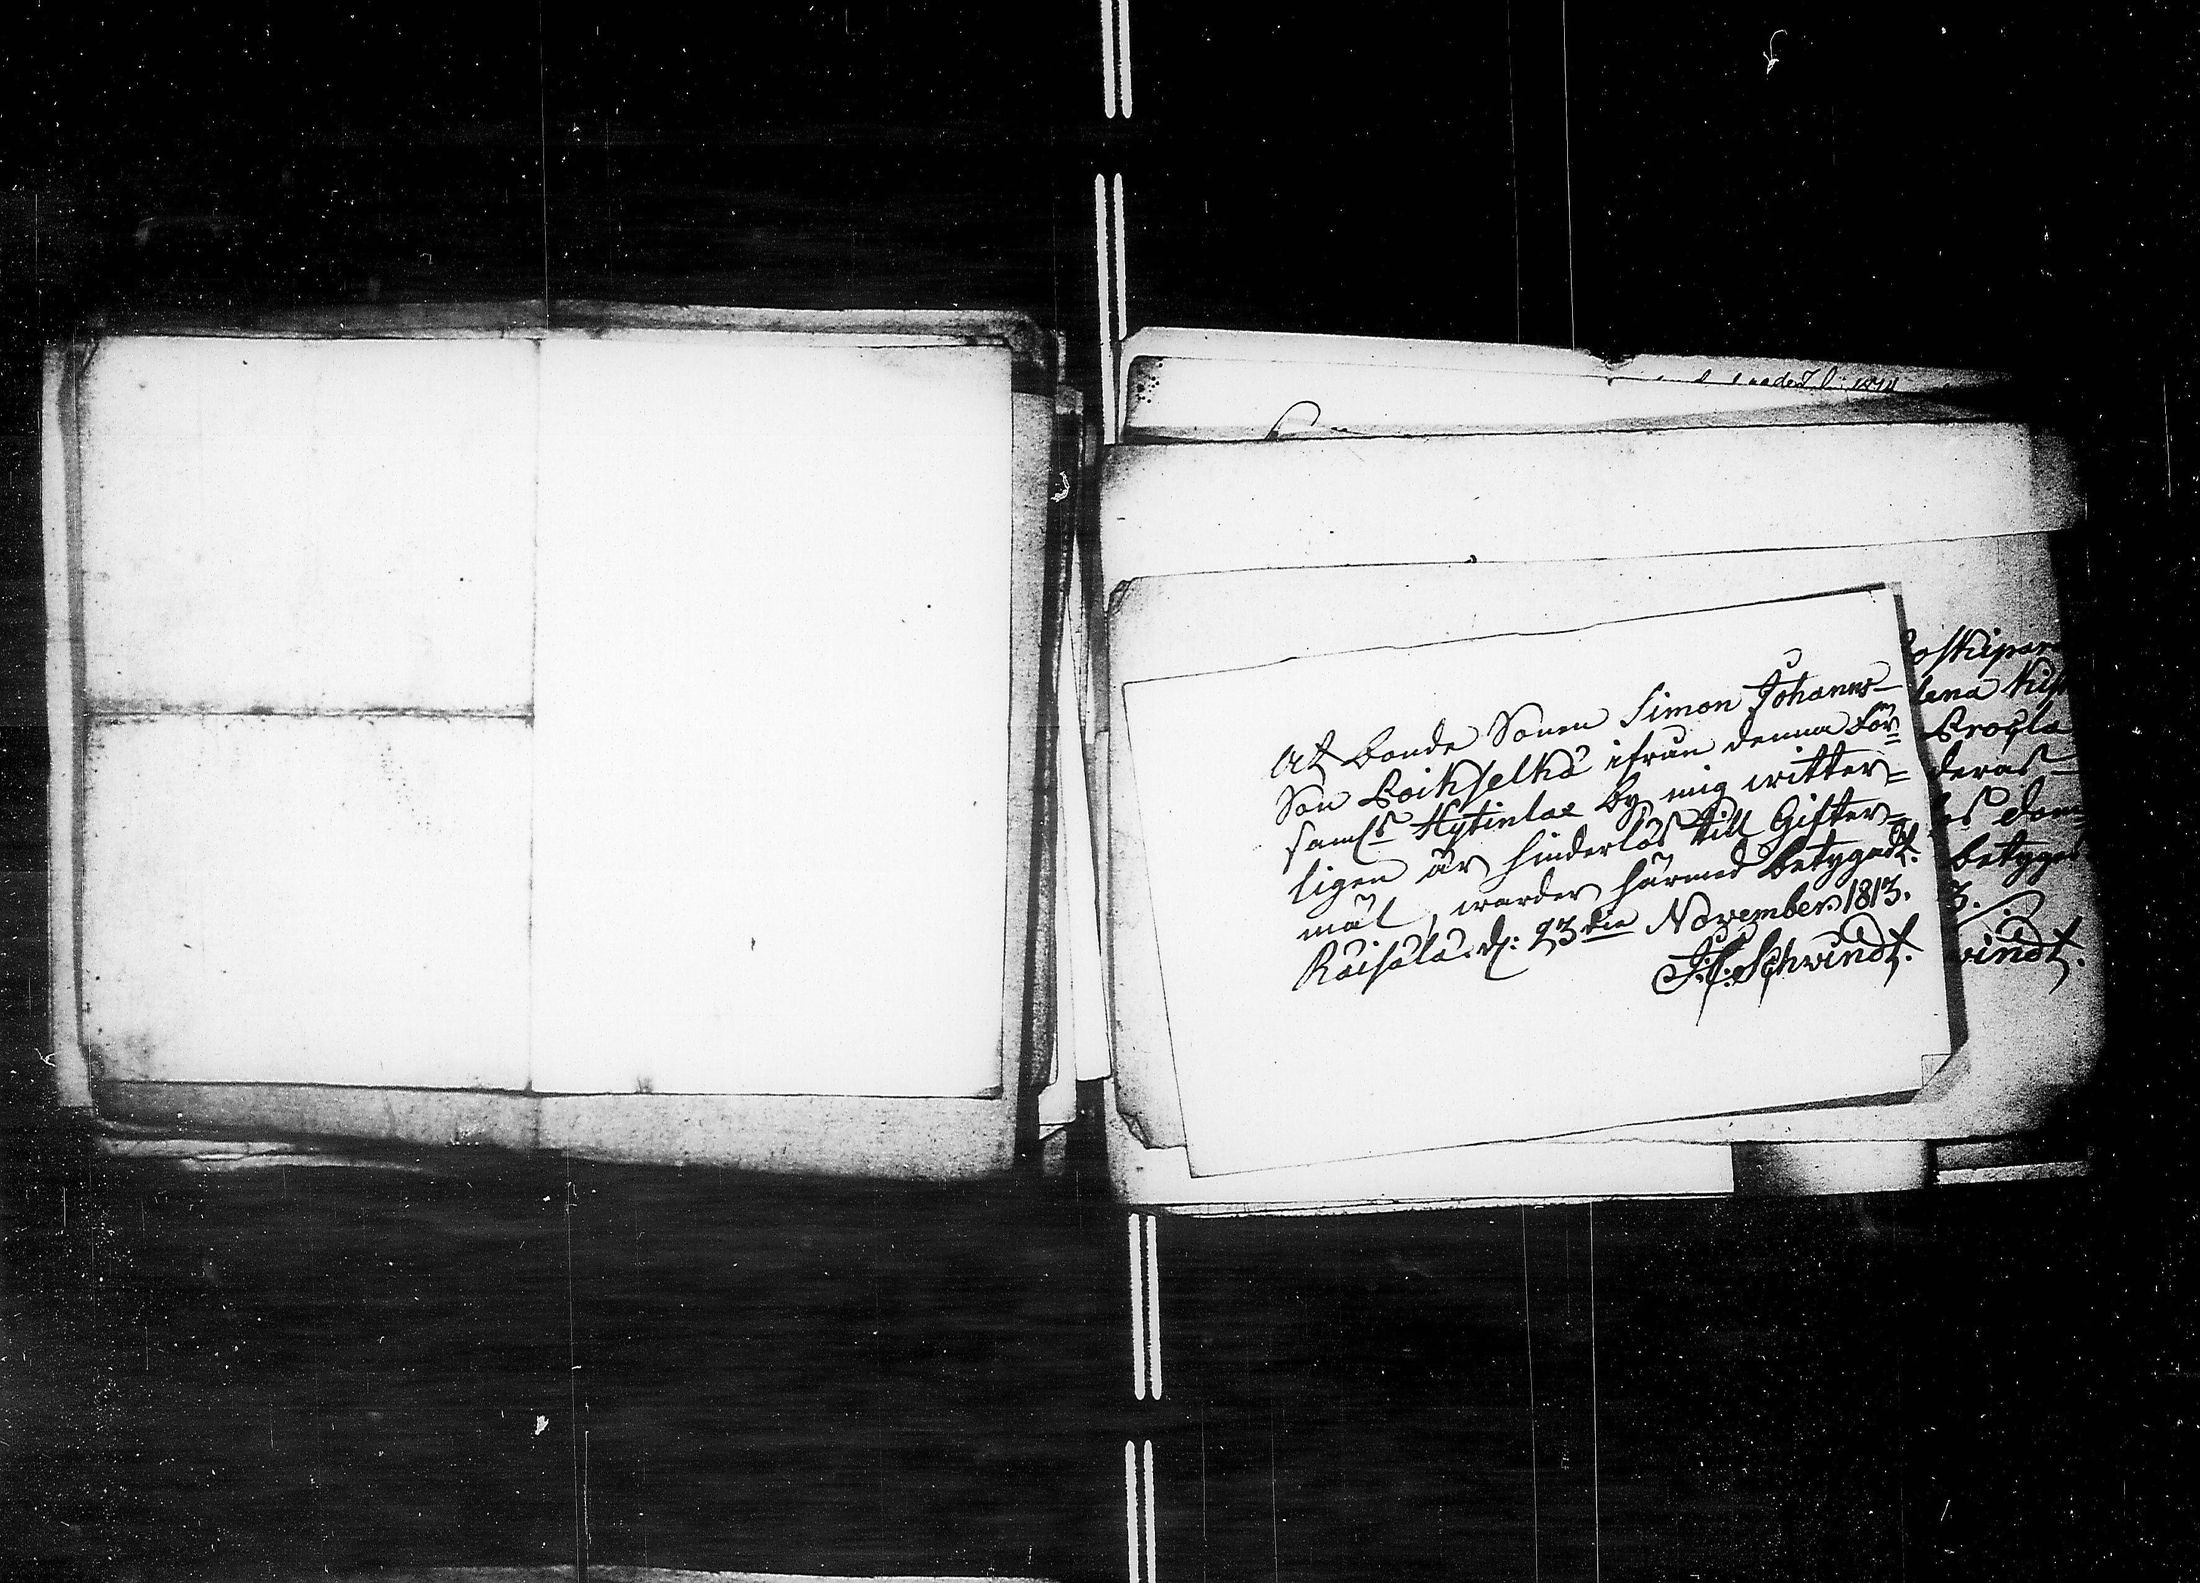 At Bonde Sonen Simon Johans-
Son Poikselkä ifrån denna För=
saml:s Hytinlax By, mig witter=
ligen är hinderlös till Gifter=
mål, warder härmed betygadt.
Räisälä d: 23die November 1813.
J: F: Schvindt.
Procla
deras
dom
betygas
3.
vindt.